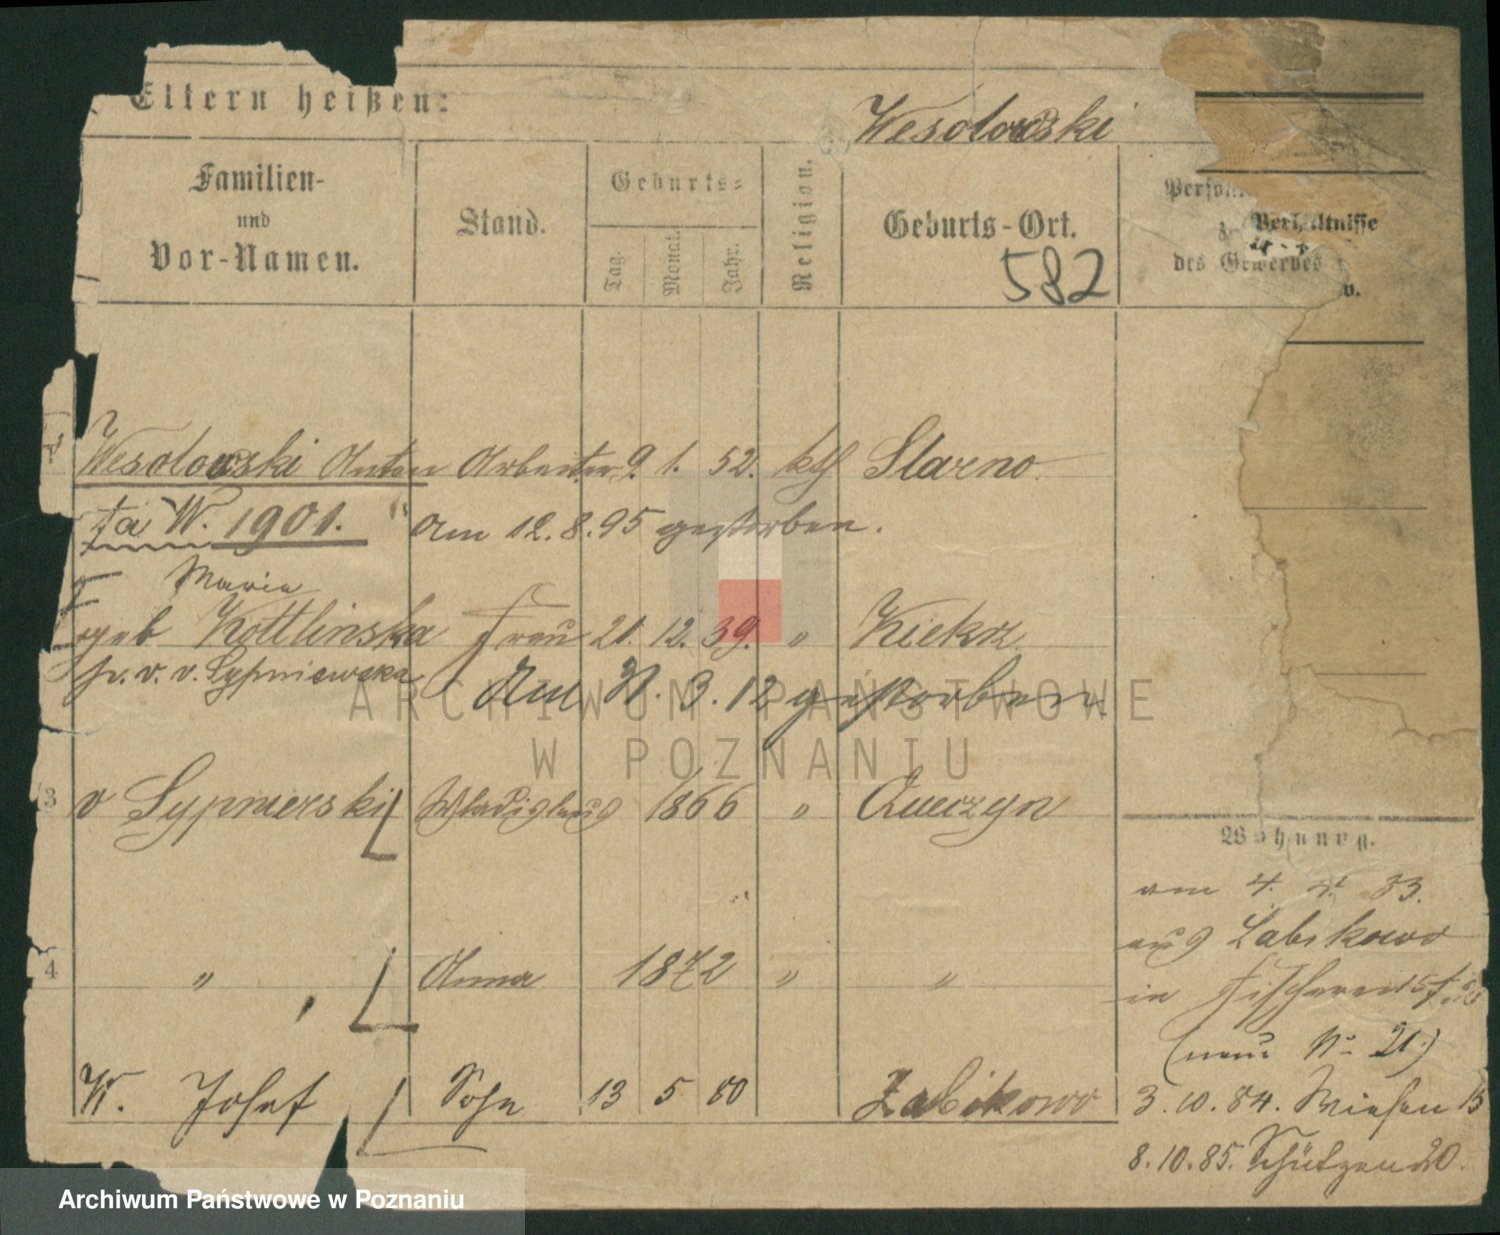 Eltern heißen:
Wesolowski
Familien- und Vor-Namen.
Stand.
Geburts-
Tag. Monat. Jahr.
Religion.
Geburts-Ort.
582
Verhältnisse
des Gewerbes
Wesolowski Anton Arbeiter 9. 1. 52. kth Slarno
W. 1901. Am 12.8.95 gestorben.
Maria
geb Kottlinska Frau 21. 12. 39. " Kiekrz
fr. v. v. Sypniewska
Am 3.12 gestorben
3 v Sypnierski Wladislaus 1866 "
4 " Anna 1872 " "
W. Josef Sohn 13 5 80 Zabikowo
Wohnung.
am 4. 83.
aus Zabikowo
in Fischerei
(neue No 21)
3.10.84. Wiesen 15
8.10.85. Schützen 20.
ARCHIWUM PAŃSTWOWE
W POZNANIU
Archiwum Państwowe w Poznaniu